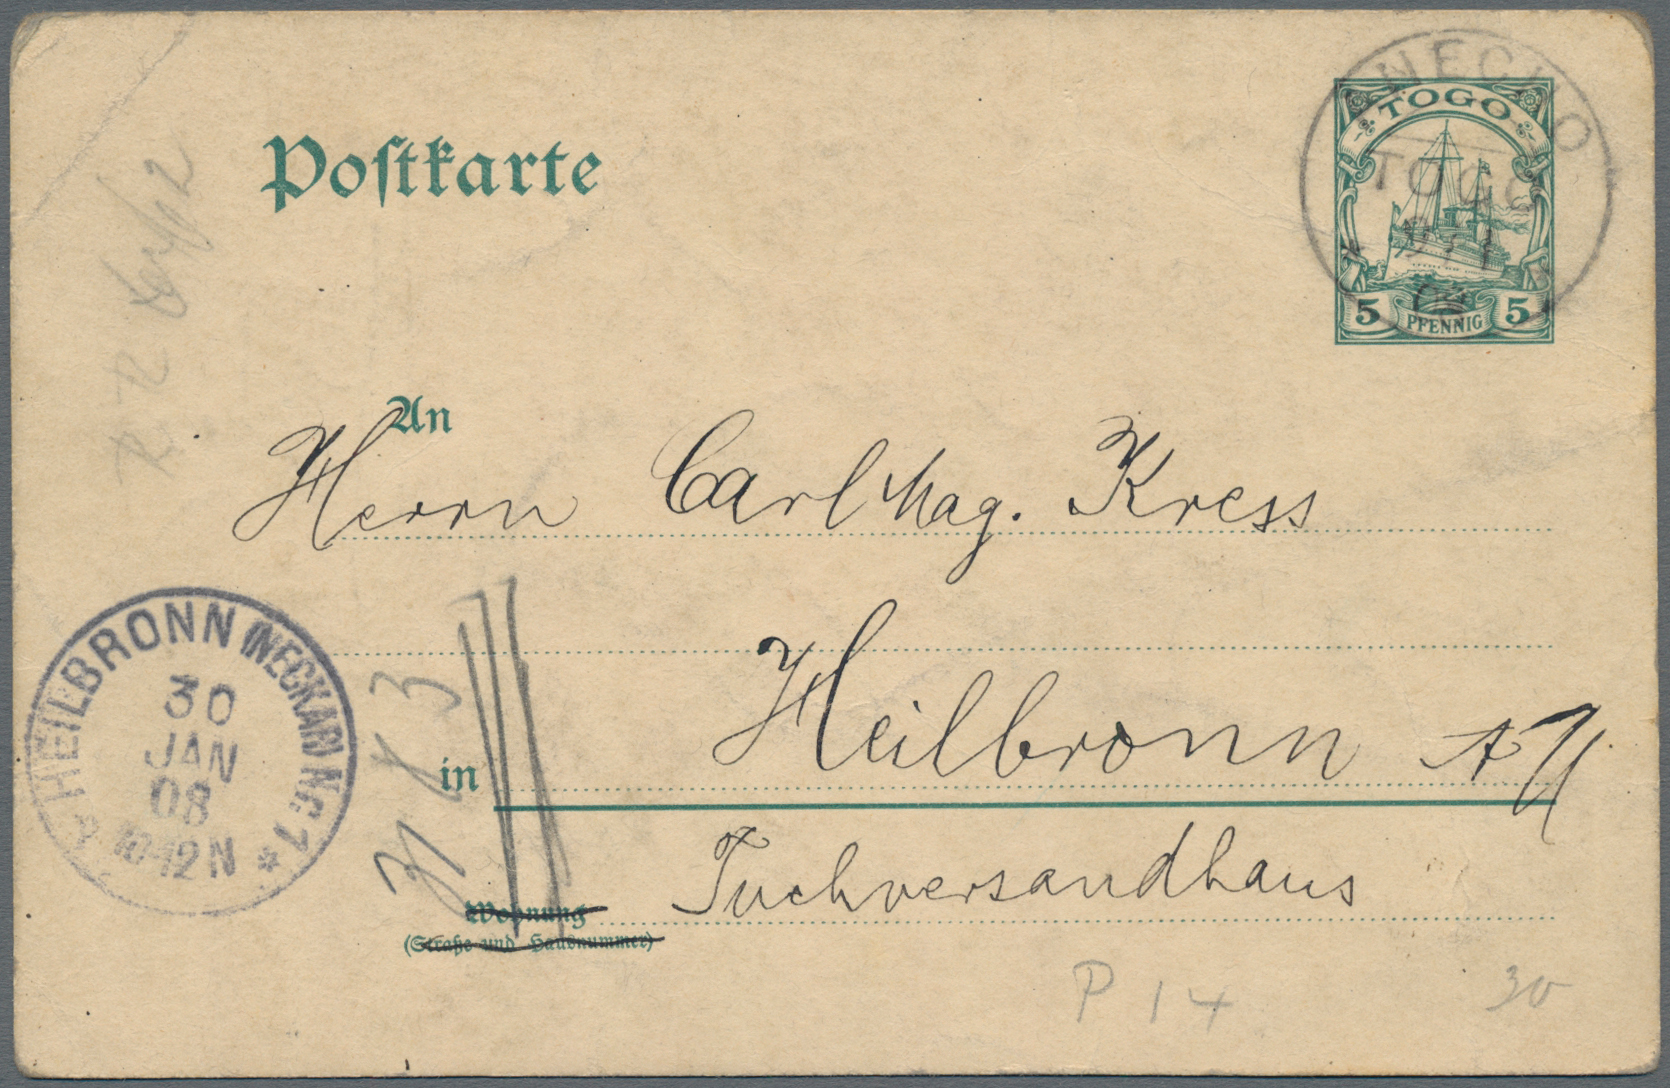 Postkarte
ANECHO
TOGO
TOGO
5 PFENNIG 5
An
Herrn Carl Mag. Kress
in Heilbronn a/N
Tuchversandhaus
Wohnung
(Straße und Hausnummer)
HEILBRONN (NECKAR) No 1
30
JAN
08
10-12 N
P 14
30